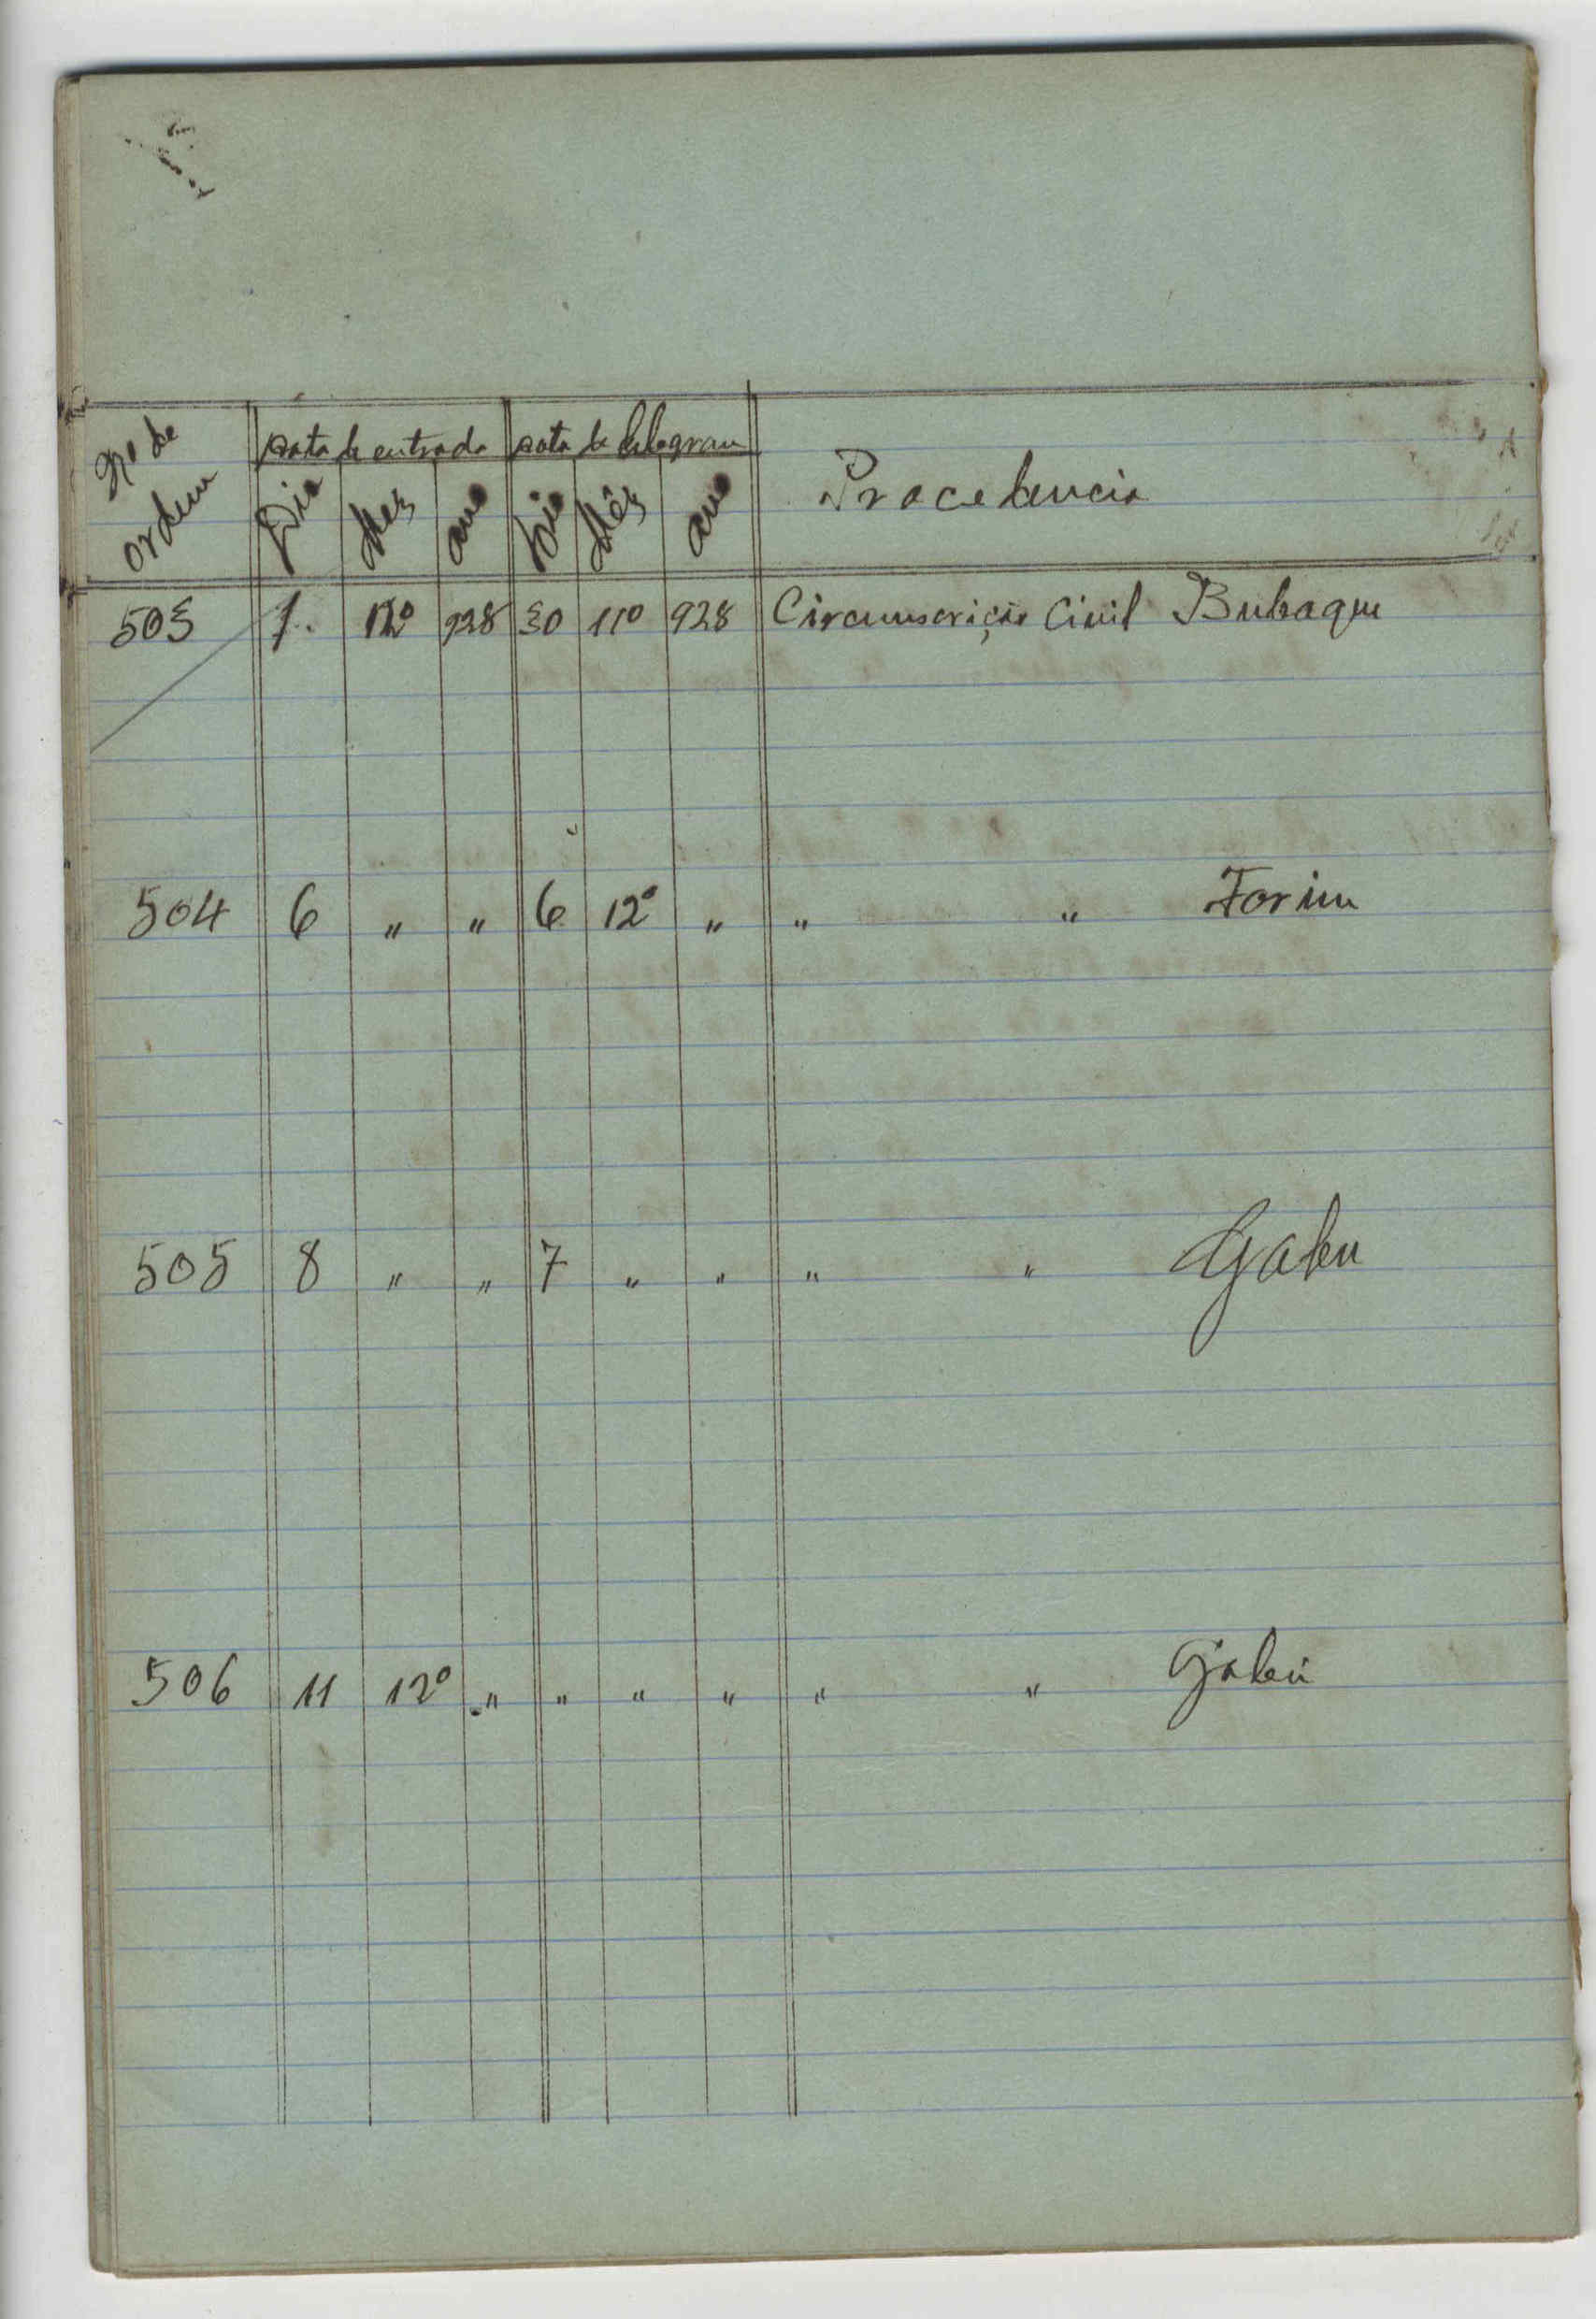 Nº de ordem
Data de entrada
Data de telegrama
Procedencia
Dia Mez ano Dia Mês ano
503 1. 12º 928 30 11º 928 Circumscrição Civil Bubaque
504 6 " " 6 12º " " " Farim
505 8 " " 7 " " " " Gabu
506 11 12º " " " " " " Gabú